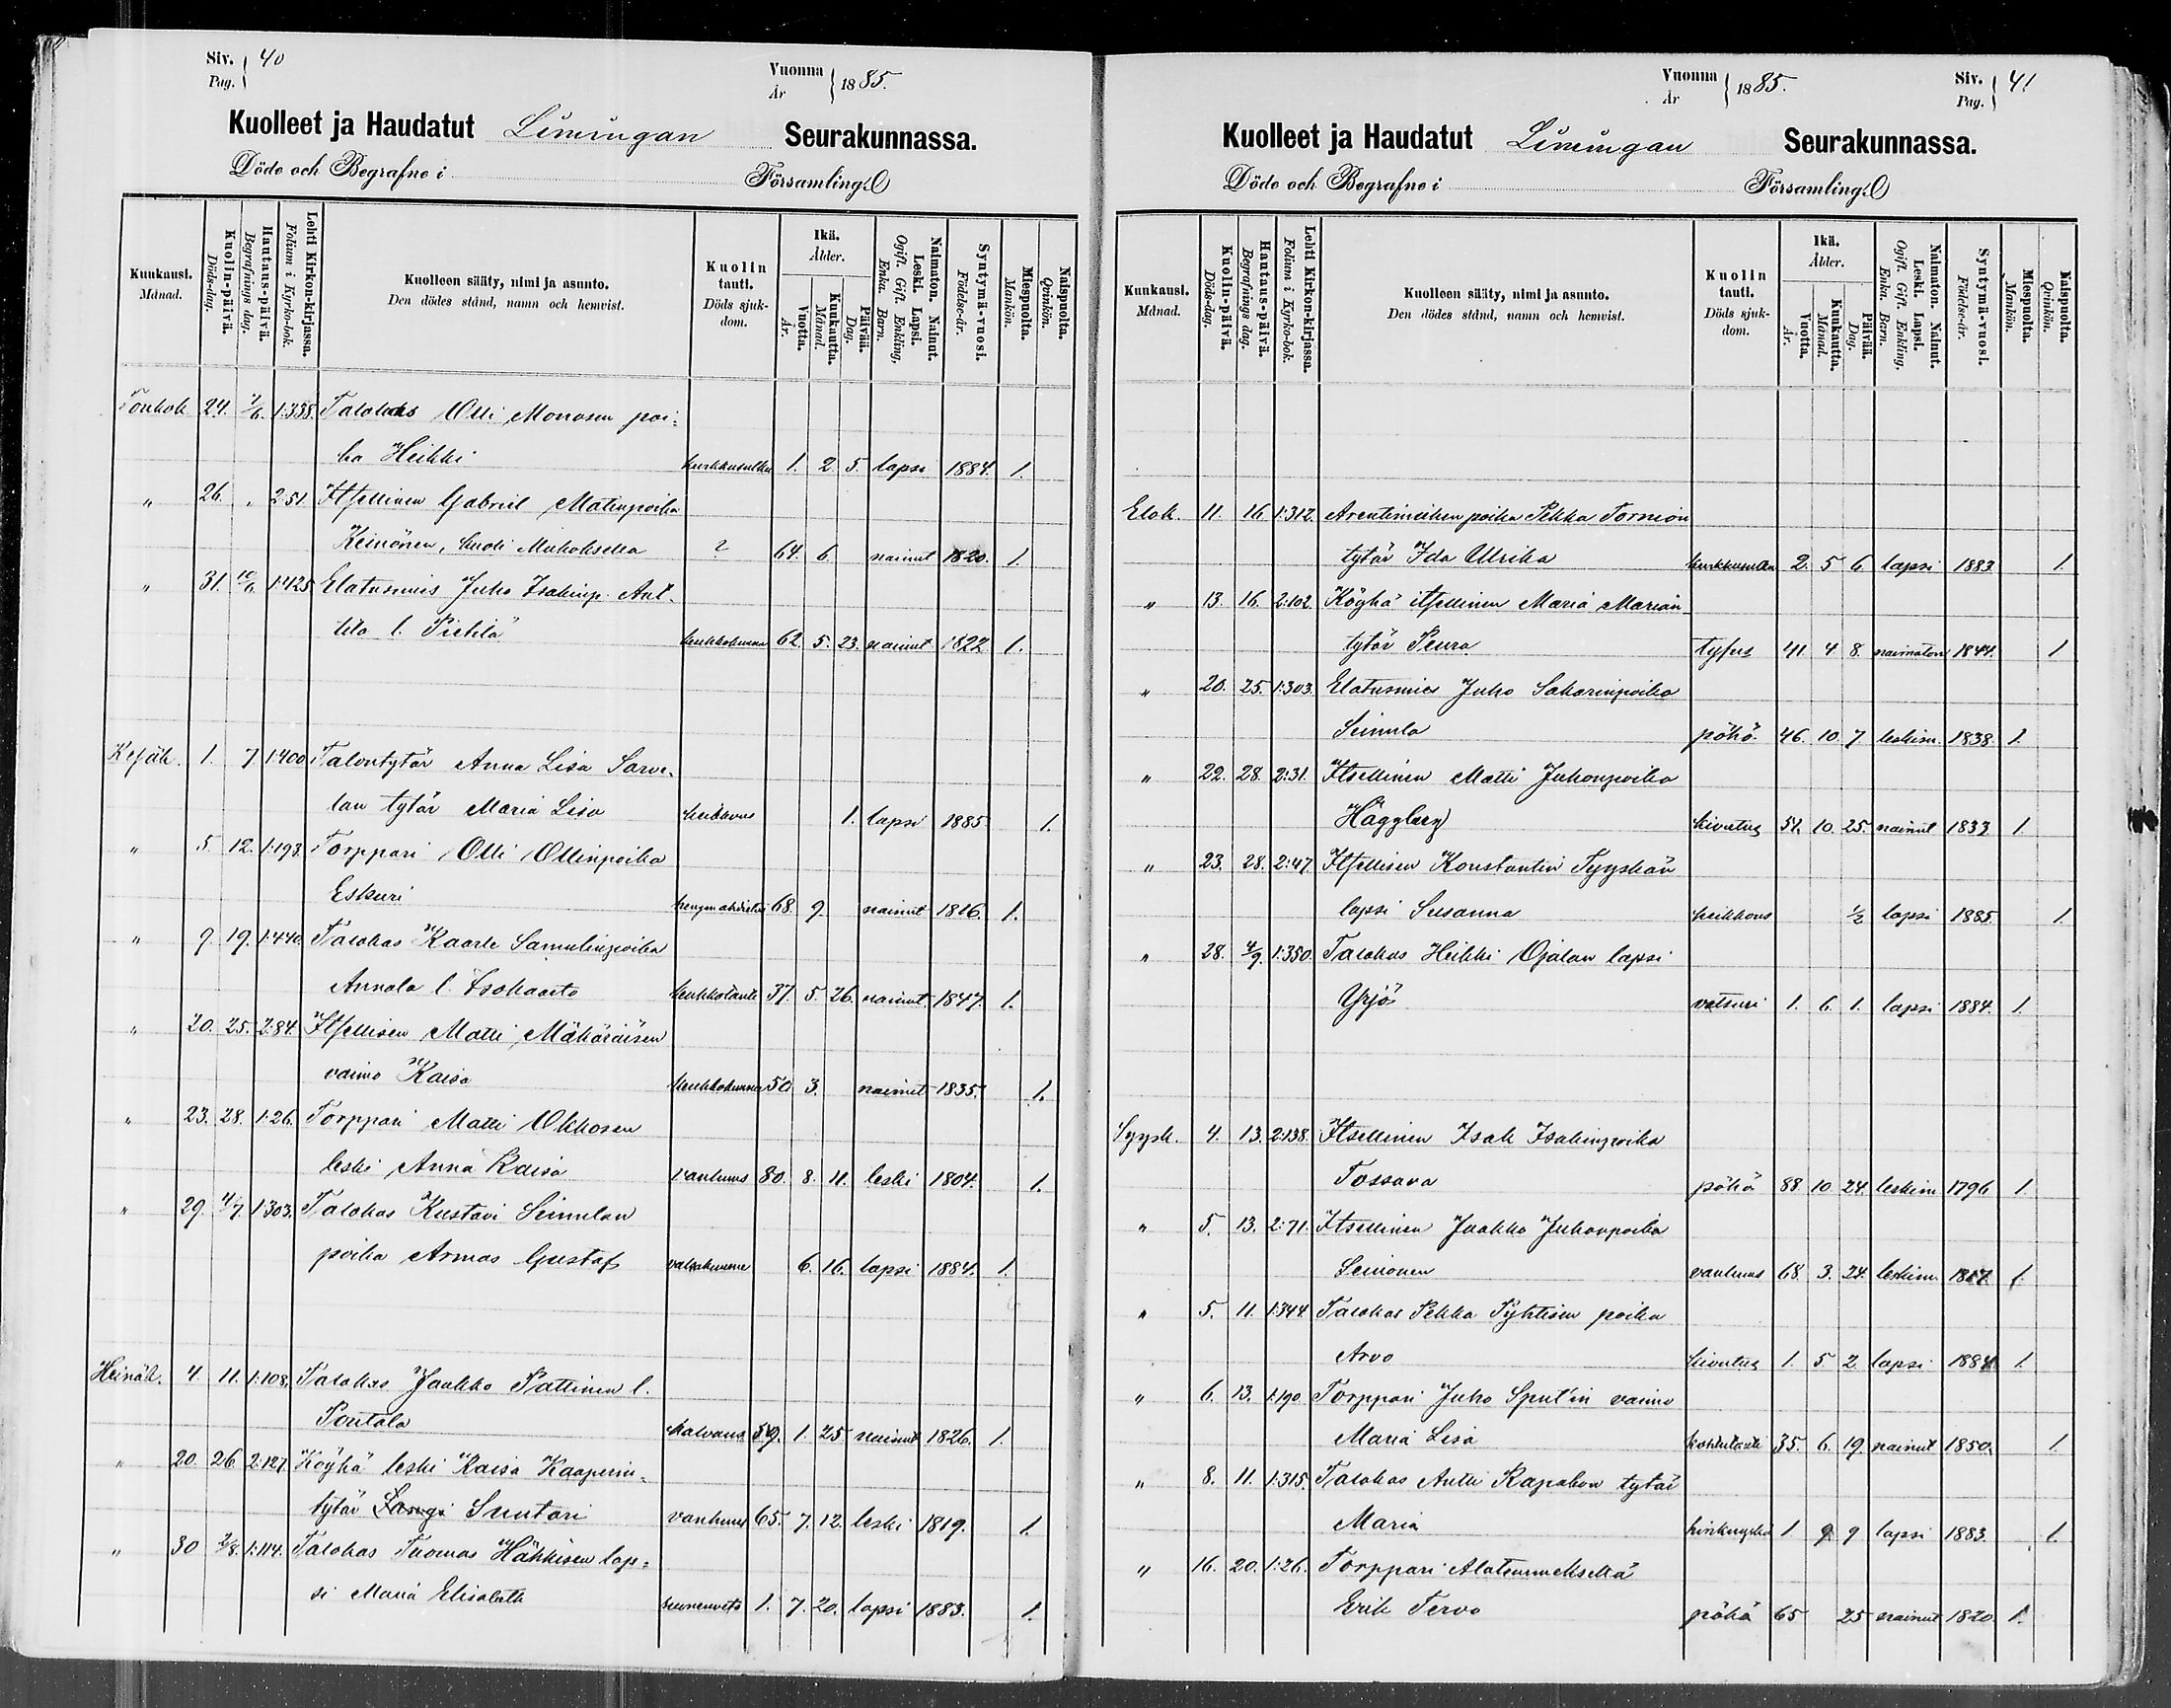 Siv. 40
Pag.
Vuonna 1885.
År
Kuolleet ja Haudatut Limingan Seurakunnassa.
Döde och Begrafne i Församling.
Kuukausi. Månad.
Kuolin-päivä. Döds-dag.
Hautaus-päivä. Begrafnings dag.
Lehti Kirkon-kirjassa. Folium i Kyrko-bok.
Kuolleen sääty, nimi ja asunto. Den dödes stånd, namn och hemvist.
Kuolin tauti. Döds sjukdom.
Ikä. Ålder.
Vuotta. År.
Kuukautta. Månad.
Päivää. Dag.
Naimaton. Nainut. Leski. Lapsi. Ogift. Gift. Enkling, Enka. Barn.
Syntymä-vuosi. Födelse-år.
Miespuolta. Mankön.
Naispuolta. Qvinkön.
Toukok 24. 7/6. 1:358. Talokas Olli Monosen poi-
ka Heikki kurkkusulku 1. 2 5. lapsi 1884. 1.
" 26. " 2:51. Itsellinen Gabriel Matinpoika
Keinönen, kuoli Muhoksella ? 64. 6. nainut 1820. 1.
" 31. 10/6. 1:425 Elatusmies Juho Isakinp. Ant-
tila l. Pietilä keuhkokuume 62. 5. 23. nainut 1822 1.
Kesäk. 1. 7. 1:400 Talontytär Anna Lisa Sarve-
lan tytär Maria Lisa heikkous 1. lapsi 1885 1.
" 5. 12. 1:193. Torppari Olli Ollinpoika
Eskuri hengenahdistus 68. 9. nainut 1816. 1.
" 9. 19. 1:440. Talokas Kaarle Samulinpoika
Annala l. Isokaarto keuhkotauti 37. 5. 26. nainut 1847. 1.
" 20. 25. 2:84. Itsellisen Matti Mähäräisen
vaimo Kaisa keuhkokuume 50. 3. nainut 1835. 1.
" 23. 28. 1:26. Torppari Matti Okkosen
leski Anna Kaisa vanhuus 80. 8. 11. leski 1804. 1.
" 29. 4/7. 1:303. Talokas Kustavi Seimulan
poika Armas Gustaf 6. 16. lapsi 1884. 1.
Heinäk. 4. 11. 1:108. Talokas Jaakko Pattinen l.
Poutala halvaus 59. 1. 25 nainut 1826. 1.
" 20. 26 2:127. Köyhä leski Kaisa Kaaperin-
tytär Suutari vanhuus 65. 7. 12. leski 1819. 1.
" 30 2/8. 1:114. Talokas Tuomas Häkkisen lap-
si Maria Elisabeth 1. 7. 20. lapsi 1883. 1.
Vuonna 1885.
År
Siv. 41
Pag.
Kuolleet ja Haudatut Limingan Seurakunnassa.
Döde och Begrafne i Församling.
Kuukausi. Månad.
Kuolin-päivä. Döds-dag.
Hautaus-päivä. Begrafnings dag.
Lehti Kirkon-kirjassa. Folium i Kyrko-bok.
Kuolleen sääty, nimi ja asunto. Den dödes stånd, namn och hemvist.
Kuolin tauti. Döds sjukdom.
Ikä. Ålder.
Vuotta. År.
Kuukautta. Månad.
Päivää. Dag.
Naimaton. Nainut. Leski. Lapsi. Ogift. Gift. Enkling. Enka. Barn.
Syntymä-vuosi. Födelse-år.
Miespuolta. Mankön.
Naispuolta. Qvinkön.
Elok. 11. 16 1:312. Arentimiehen poika Pekka Tornion
tytär Ida Ulrika kurkkusulku 2. 5 6. lapsi 1883 1.
" 13. 16. 2:102. Köyhä itsellinen Maria Marian
tytär Peura tyfus 41. 4 8. naimaton 1844. 1
" 20. 25. 1:303. Elatusmies Juho Sakarinpoika
Seimula pöhö 46. 10. 7 leskim. 1838. 1.
" 22. 28. 2:31. Itsellinen Matti Juhonpoika
Häggberg kivutus 51. 10. 25. nainut 1833 1.
" 23. 28. 2:47. Itsellisen Konstantin Tyyskän
lapsi Susanna heikkous 1/2 lapsi 1885. 1.
" 28. 4/9. 1:350. Talokas Heikki Ojalan lapsi
Yrjö vatsuri 1. 6. 1. lapsi 1884. 1.
Syysk. 4. 13. 2:138. Itsellinen Isak Isakinpoika
Tossava pöhö 88. 10 24. leskim 1796 1.
" 5. 13. 2:71. Itsellinen Jaakko Juhonpoika
Seinonen vanhuus 68. 3. 24. leskim. 1817. 1.
" 5. 11. 1:344. Talokas Pekka Pyhtisen poika
Arvo kivutus 1. 5 2 lapsi 1884. 1.
" 6. 13. 1:190 Torppari Juho Sput'in vaimo
Maria Lisa kohtutauti 35. 6. 19. nainut 1850. 1.
" 8. 11. 1:315. Talokas Antti Rapakon tytär
Maria hinkuyskä 1. 9 9 lapsi 1883. 1.
" 16. 20. 1:26. Torppari Alatemmekseltä
Erik Tervo pöhö 65 25 nainut 1820. 1.